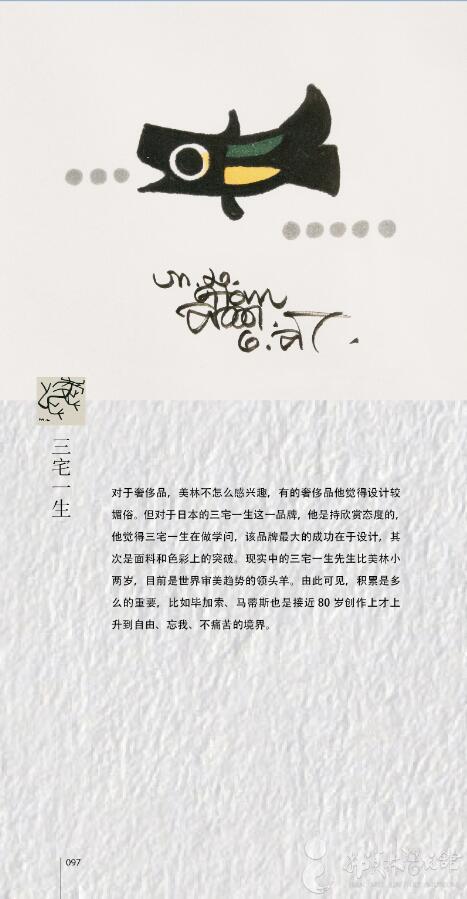 三宅一生
对于奢侈品，美林不怎么感兴趣，有的奢侈品他觉得设计较
媚俗。但对于日本的三宅一生这一品牌，他是持欣赏态度的，
他觉得三宅一生在做学问，该品牌最大的成功在于设计，其
次是面料和色彩上的突破。现实中的三宅一生先生比美林小
两岁，目前是世界审美趋势的领头羊。由此可见，积累是多
么的重要，比如毕加索、马蒂斯也是接近 80 岁创作上才上
升到自由、忘我、不痛苦的境界。
097